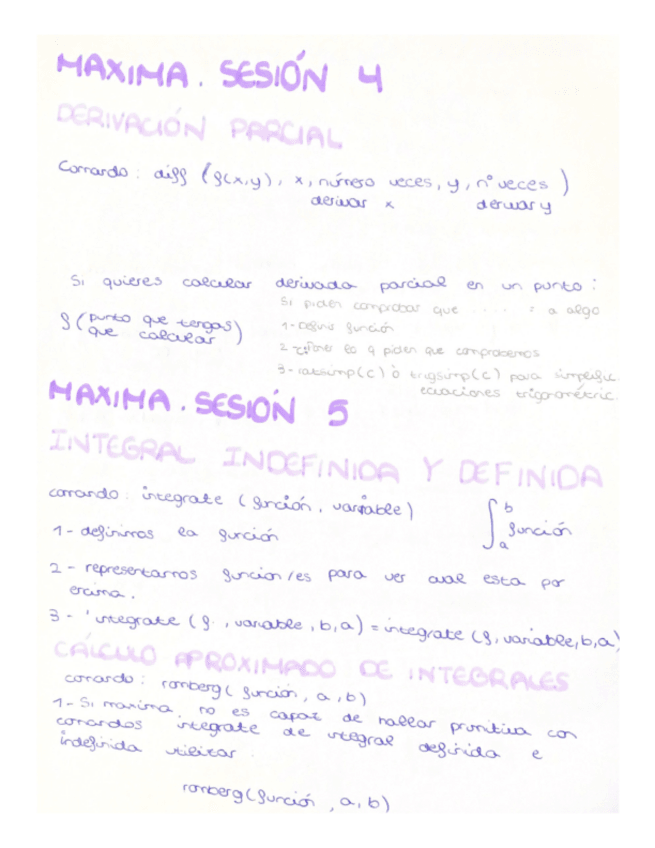 MAXIMA. SESIÓN 4
DERIVACIÓN PARCIAL
Comando: diff (f(x,y), x, número veces, y, nº veces)
derivar x derivar y
Si quieres calcular derivada parcial en un punto:
f(punto que tengas
que calcular)
Si piden comprobar que .... = a algo
1- Define función
2- c: Poner lo q piden que comprobemos
3- ratsimp(c) ò trigsimp(c) para simplific.
ecuaciones trigonométric.
MAXIMA. SESIÓN 5
INTEGRAL INDEFINIDA Y DEFINIDA
comando: integrate (función, variable)
∫ b a función
1- definimos la función
2- representamos función/es para ver cual esta por
encima.
3- 'integrate (f, variable, b, a) = integrate (f, variable, b, a)
CÁLCULO APROXIMADO DE INTEGRALES
comando: romberg( función, a, b)
1- Si maxima no es capaz de hallar primitiva con
comandos integrate de integral definida e
indefinida utilizar
romberg(función, a, b)